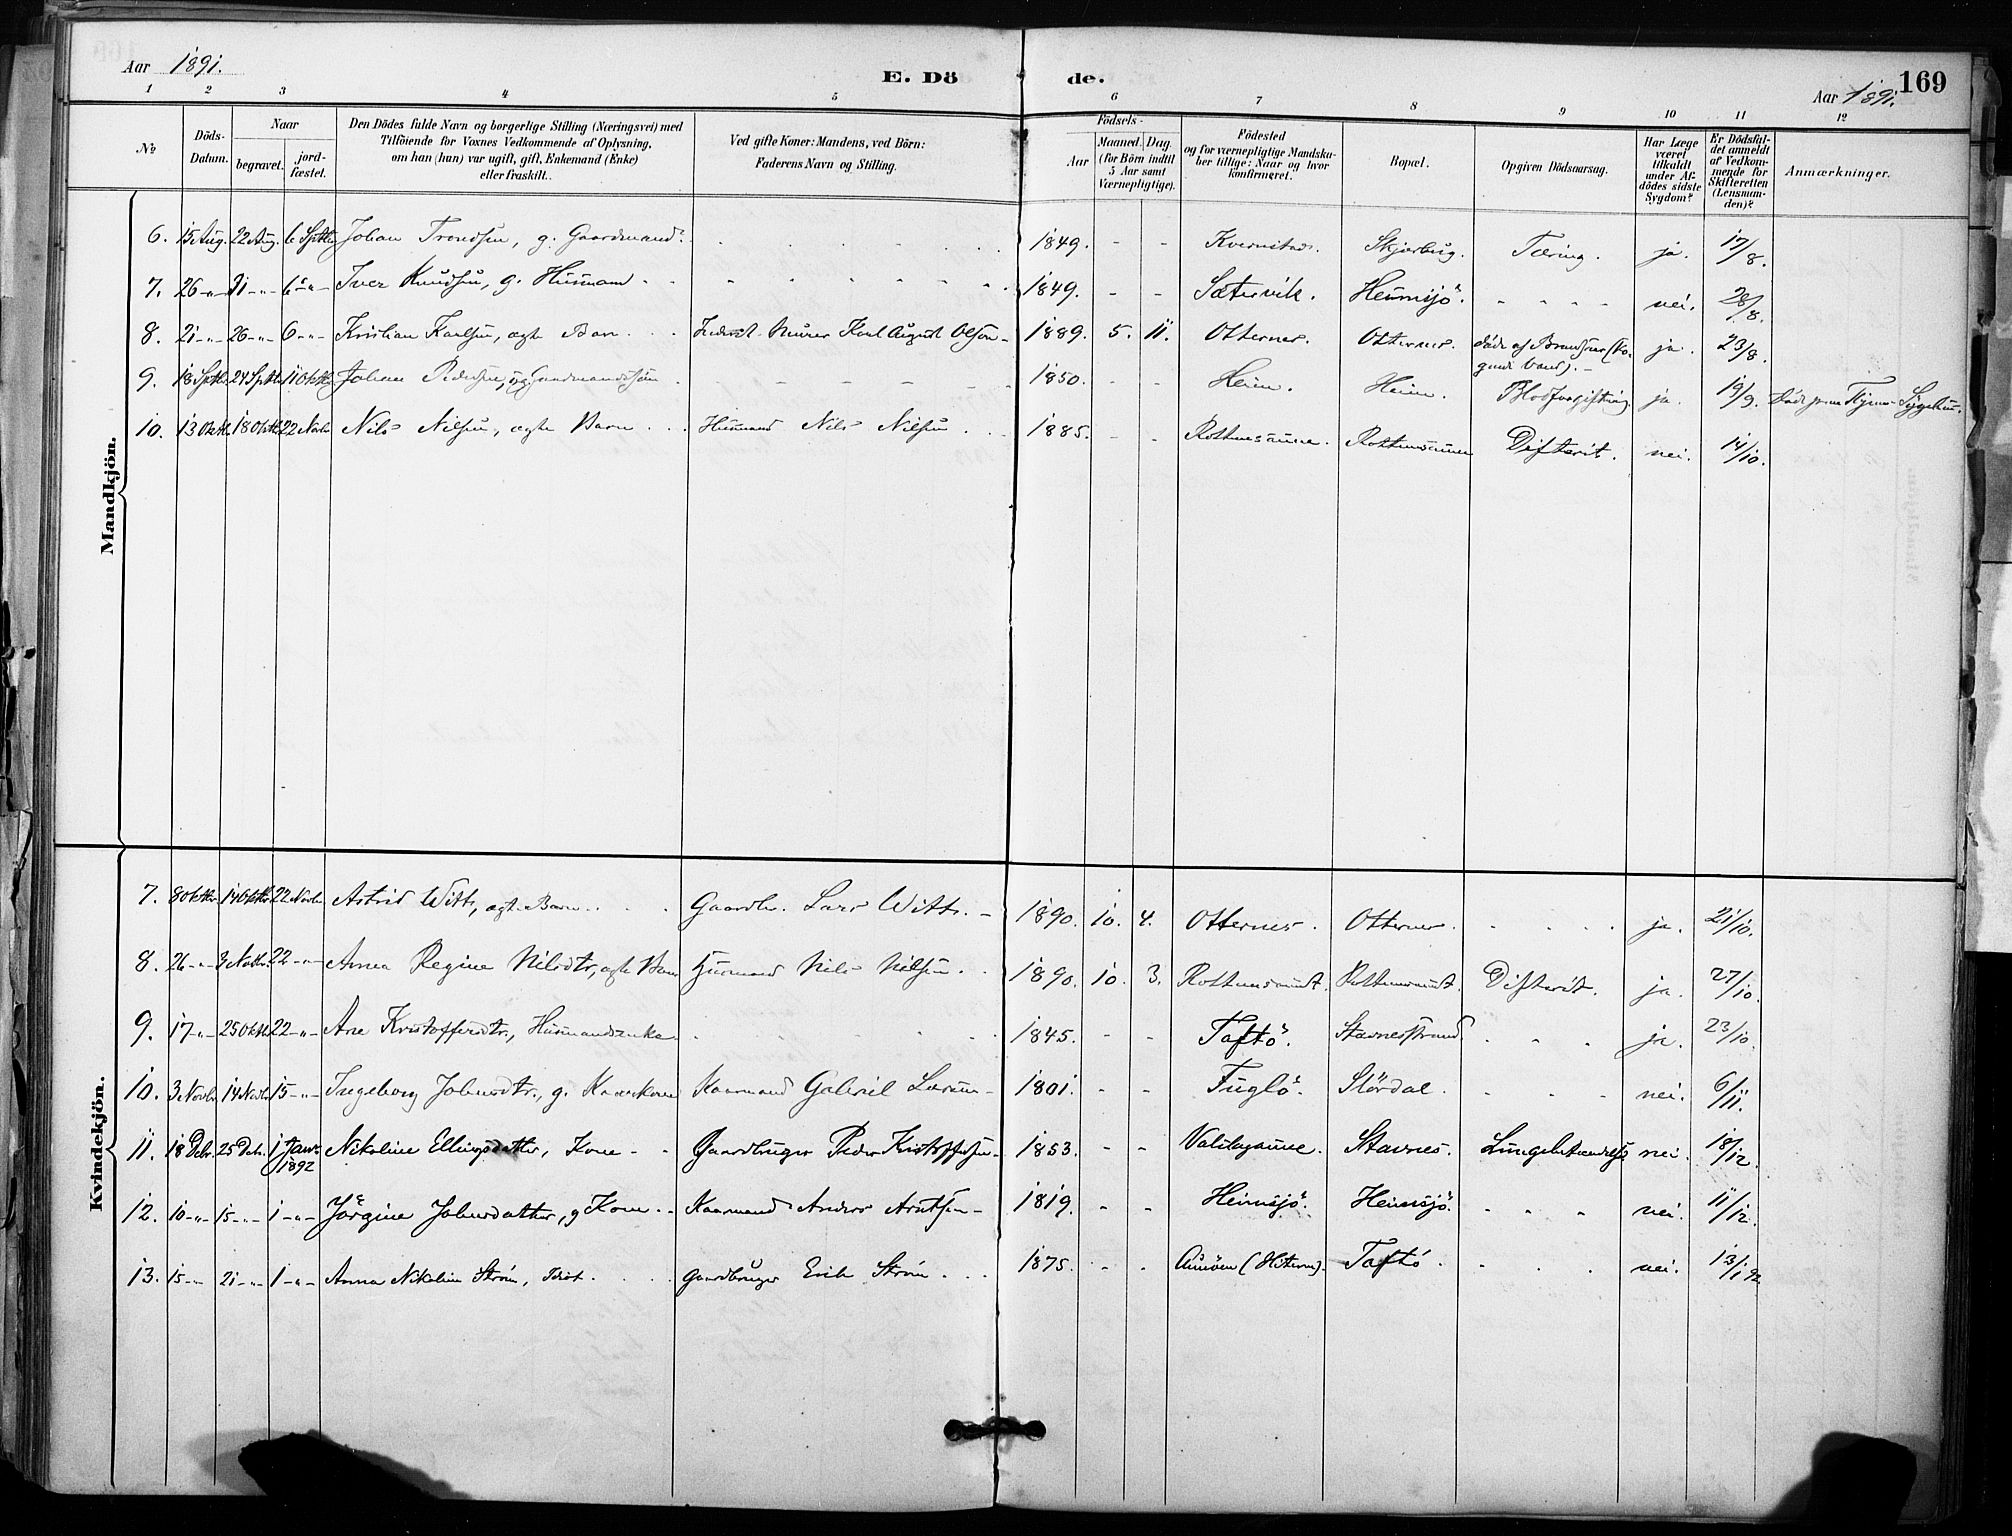 Aar 1891.
E. Dö de.
Aar 1891.
169
1 2 3 4 5 6 7 8 9 10 11 12
No
Döds-Datum.
Naar
begravet.
jord-fæstet.
Den Dödes fulde Navn og borgerlige Stilling (Næringsvei) med
Tilföiende for Voxnes Vedkommende af Oplysning,
om han (hun) var ugift, gift, Enkemand (Enke)
eller fraskilt.
Ved gifte Koner: Mandens, ved Börn:
Faderens Navn og Stilling.
Födsels-
Aar
Maaned. Dag.
(for Börn indtil
5 Aar samt
Værnepligtige).
Födested
og for værnepligtige Mandska-
ber tillige: Naar og hvor
konfirmeret.
Bopæl.
Opgiven Dödsaarsag.
Har Læge
været
tilkaldt
under Af-
dödes sidste
Sygdom?
Er Dödsfal-
det anmeldt
af Vedkom-
mende for
Skifteretten
(Lensman-
den)?
Anmærkninger.
Mandkjön.
6. 15 Aug. 22 Aug. 6 Septbr Johan Trondsen, g. Gaardmand 1849. - - Kvernstad. Skjærbug. Tæring. ja. 17/8.
7. 26 -„- 31 -„- 6 -„- Iver Knudsen, g. Husmand 1849. - - Sætervik. Heimsjö. nei. 28/8.
8. 21 -„- 26 -„- 6 -„- Kristian Karlsen, ægte Barn Murer Karl August Olsen 1889. 5. 11. Otternes. Otternes. död af Brandsaar (ko-
gende Vand). ja. 23/8.
9. 18 Septbr 24 Septbr 11 Oktbr Johan Pedersen, Gaardmandssön 1850. Heim. Heim. Blodforgiftning ja. 19/9.
10. 13 Oktbr 18 Oktbr 22 Novbr Nils Nilsen, ægte Barn Husmand Nils Nilsen 1885. - - Difterit. nei. 14/10.
Kvindekjön.
7. 8 Oktbr 14 Oktbr 22 Novbr Astrid Witts, ægte Barn Gaardbr. Lars Witts. 1890. 10. 4. Otternes. Otternes. ja. 21/10.
8. 26 -„- 3 Novbr 22 -„- Anna Regine Nilsdtr, ægte Barn Husmand Nils Nilsen. 1890. 10. 3. Difterit. ja. 27/10.
9. 17 -„- 25 Oktbr 22 -„- Ane Kristoffersdtr, Husmandsenke 1845. - - Taftö. Stavnesstrand ja. 23/10.
10. 3 Novbr 14 Novbr 15 -„- Ingeborg Johnsdtr., g. Kaarkone Kaarmand Gabriel Larsen 1801. - - Fuglö. Slördal. nei. 6/11.
11. 18 Debr. 25 Debr. 1 Janr. 1892 Nikoline Ellingsdatter, Kone Gaardbruger Peder Kristoffersen 1853. - - Stavnes. Lungebetændelse nei. 18/12.
12. 10 -„- 15 -„- 1 -„- Jörgine Johnsdatter, g Kone Kaarmand Anders Arntsen 1819. - - Heimsjö. Heimsjö. nei. 11/12.
13. 15 -„- 21 -„- 1 -„- Anna Nikoline Ström, Idiot. Gaardbruger Erik Ström. 1875. - - (Hiteren). Taftö. nei. 13/1 92.